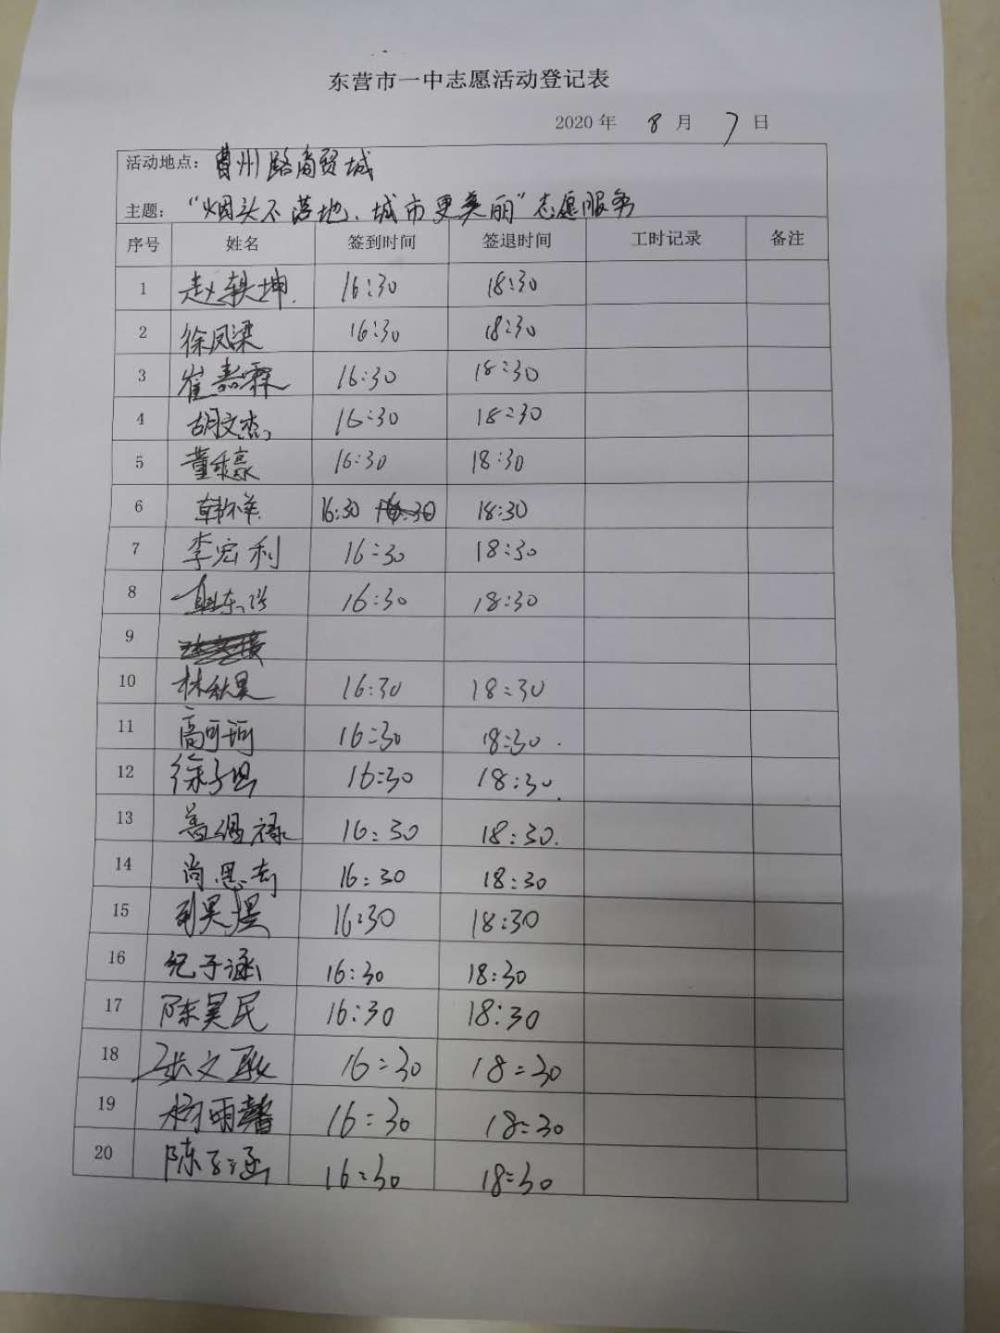 东营市一中志愿活动登记表
2020 年 8 月 7 日
活动地点: 曹州路商贸城
主题: “烟头不落地、城市更美丽”志愿服务
序号 姓名 签到时间 签退时间 工时记录 备注
1 赵轶坤 16:30 18:30
2 徐凤梁 16:30 18:30
3 崔嘉霖 16:30 18:30
4 胡文杰 16:30 18:30
5 董秉豪 16:30 18:30
6 16:30 18:30
7 李宏利 16:30 18:30
8 16:30 18:30
9
10 林秋昊 16:30 18:30
11 高可珂 16:30 18:30
12 徐子涵 16:30 18:30
13 16:30 18:30
14 尚思志 16:30 18:30
15 刘昊煜 16:30 18:30
16 纪子涵 16:30 18:30
17 陈昊民 16:30 18:30
18 张文耿 16:30 18:30
19 杨雨馨 16:30 18:30
20 陈子涵 16:30 18:30